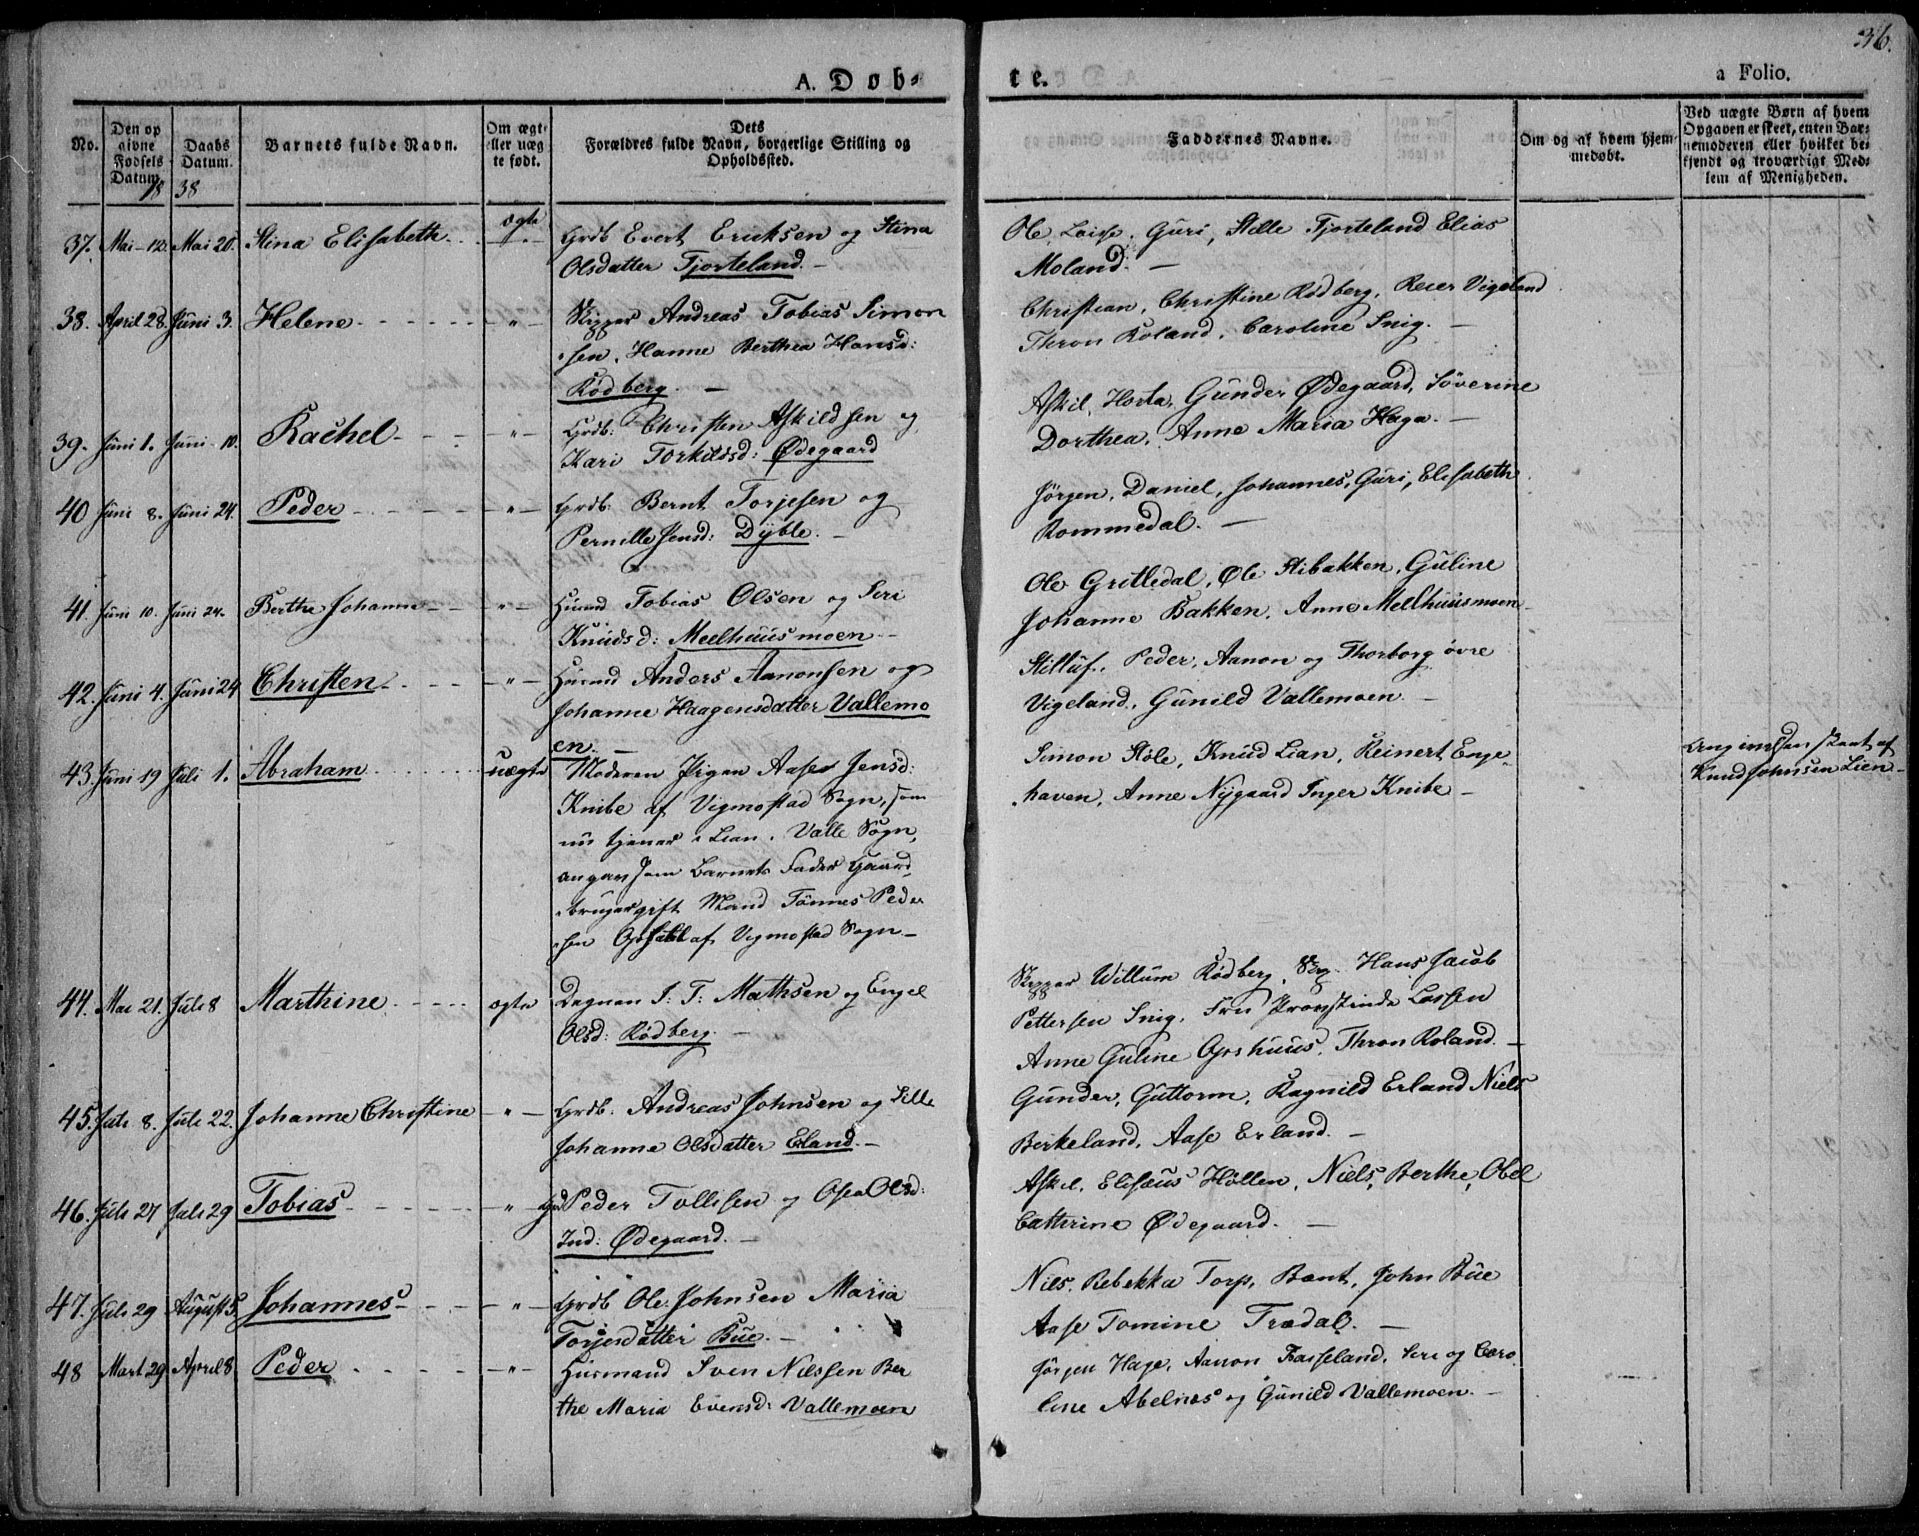 36.
A. Døb-
te.
a Folio.
No.
Den op
givne
Fødsels
Datum.
Daabs
Datum.
Barnets fulde Navn.
Om ægte
eller uæg
te født.
Dets
Forældres fulde Navn, borgerlige Stilling og
Opholdssted.
Faddernes Navne.
Om og af hvem hjem-
medøbt.
Ved uægte Børn af hvem
Opgaven er skeet, enten Bar-
nemoderen eller hvilket be-
kjendt og troværdigt Med-
lem af Menigheden.
18 38
37. Mai 12. Mai 20. Stina Elisabeth ægte Grdb Evert Eriksen og Stina
Olsdatter Tjorteland. –
Ole, Guri, Tjorteland Elias
Moland. –
38. April 28. Juni 3. Helene – " – Skipper Andreas Tobias Simon
sen, Hanne Berthea Hansd:
Rødberg. –
Christian, Christine Rødberg, Reier Vigeland
Thron Roland, Caroline Snig. –
39. Juni 1. Juni 10. Rachel – " – Grdb: Christen Askildsen og
Kari Torkildsd: Ødegaard
Askil, Horta, Gunder Ødegaard, Søverine
Dorthea, Anne Maria Haga. –
40 Juni 8. Juni 24. Peder – " – Grdb. Bernt Torjesen og
Pernille Jensd: Dyble. –
Jørgen, Daniel, Johannes, Guri, Elisabeth
Rommedal. –
41. Juni 10. Juni 24. Berthe Johanne – " – Husmd Tobias Olsen og Siri
Knudsd: Meelhuusmoen –
Ole Gritledal, Ole Stibakken, Guline
Johanne Bakken, Anne Mellhuusmoen
42. Juni 4. Juni 24 Christen – " – Husmd Anders Aanonsen og
Johanne Haagensdatter Vallemo
en. –
Peder, Aanon og Thorborg øvre
Vigeland, Gunild Vallemoen –
43. Juni 19 Juli 1. Abraham uægte Moderen Pigen Aase Jensd:
Knibe af Vigmostad Sogn, som
nu tjener i Lian, Valle Sogn,
angav som Barnets Fader Gaard
bruger gift Mand Tønnes Peder
sen af Vigmostad Sogn –
Simon Støle, Knud Lian, Reinert Enge
haven, Anne Nygaard Inger Knibe –
Knud Johnsen Lien –
44. Mai 21. Juli 8 Marthine ægte Degnen I. T: Mathsen og Engel
Olsd: Rødberg. –
Skipper Willum Rødberg, Hans Jacob
Pettersen Snig, Fru Provstinde Lassen
Anne Guline Opshuus, Thron Roland. –
45. Juli 8. Juli 22. Johanne Christine – " – Grdb: Andreas Johnsen og Sille
Johanne Olsdatter Erland. –
Gunder, Guttorm, Ragnild Erland Niels
Birkeland, Aase Erland. –
46. Juli 27 Juli 29 Tobias – " Grd Peder Tollisen og Osea Olsd:
Ind: Ødegaard. –
Askel, Elisæus Høllen, Niels, Berthe, Obel
Catherine Ødegaard. –
47. Juli 29 August 5. Johannes – " – Grdb Ole Johnsen Maria
Torjesdatter Bue. –
Niels, Rebekka Torp, Bent, John Bue
Aase Tomine Trædal. –
48 Mart 29 April 8. Peder – " – Husmand Sven Nilssen Ber
the Maria Evensd: Vallemoen
Jørgen Hage, Aanon Fasseland, Siri og Caro
line Abelnæs og Gunild Vallemoen. –